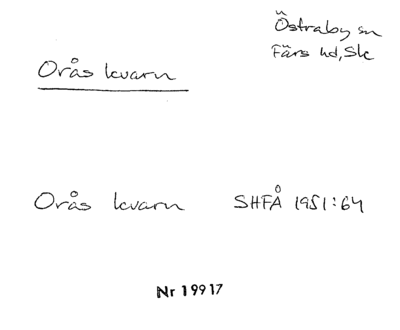 Östraby sn
Färs hd, Sk
Orås kvarn
Orås kvarn SHFÅ 1951:64
Nr 19917